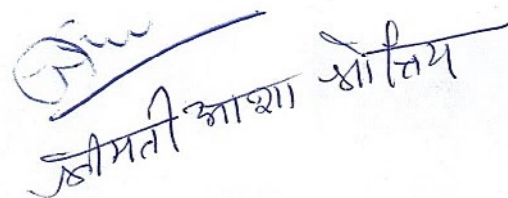 श्रीमती आशा श्रोत्रिय